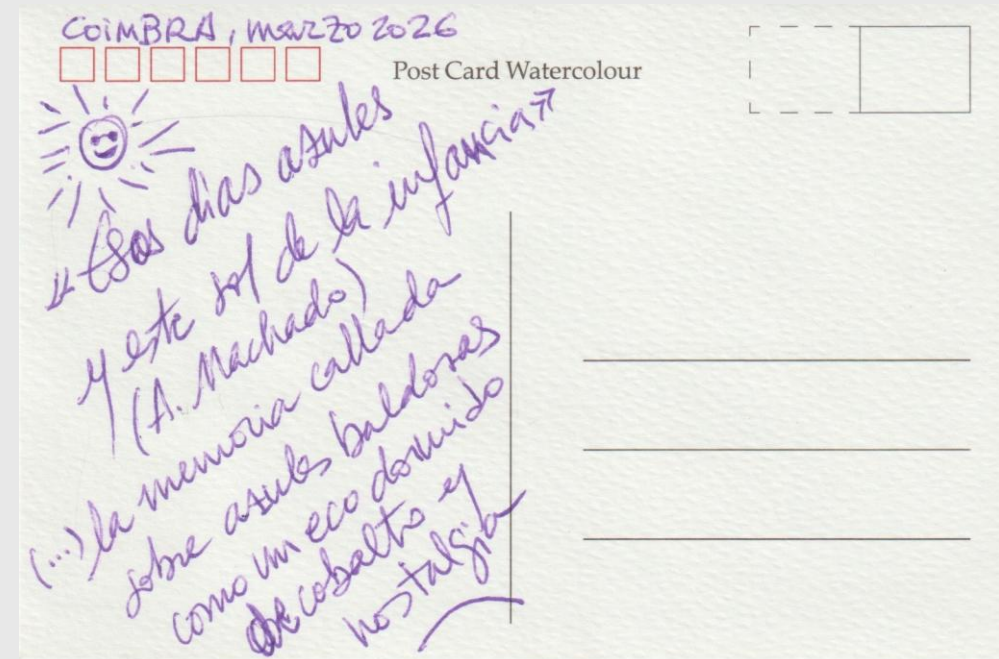 COIMBRA, marzo 2026
Post Card Watercolour
«Esos días azules
y este sol de la infancia»
(A. Machado)
(...) la memoria callada
sobre azules baldosas
como un eco dormido
de cobalto y
nostalgia